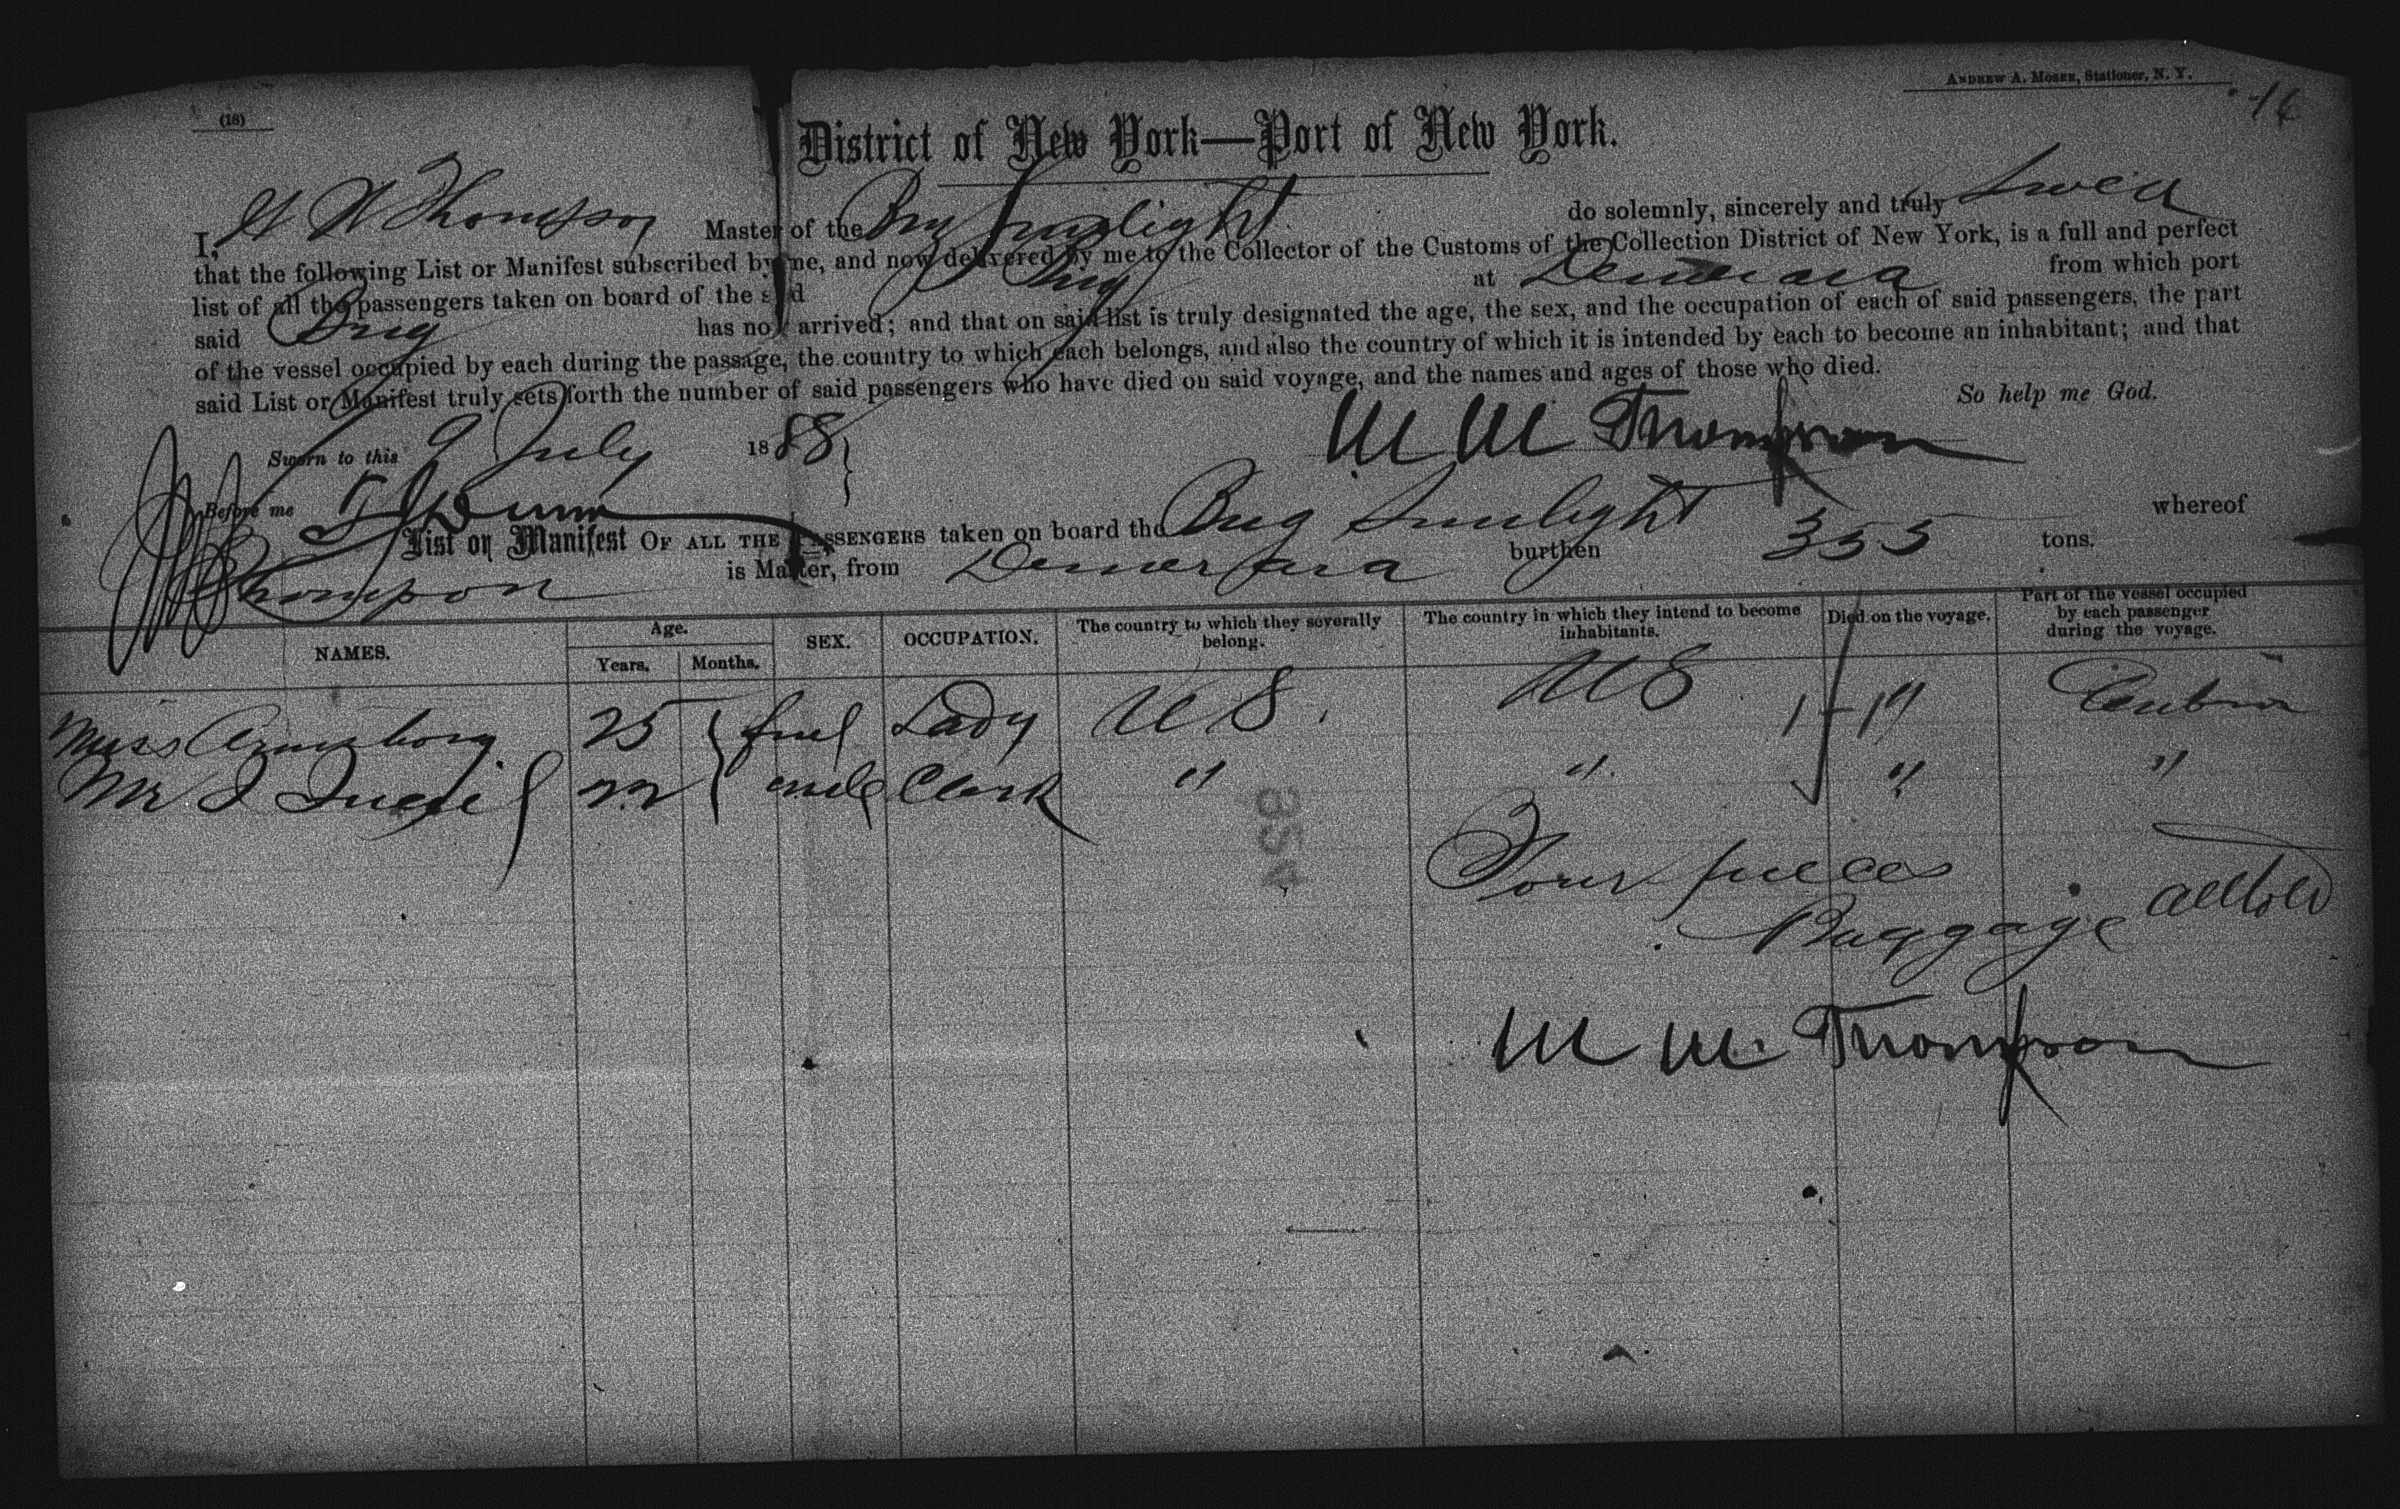 (18)
ANDREW A. MOSER, Stationer, N. Y.
District of New York—Port of New York.
I, Thompson Master of the Brig Sunlight do solemnly, sincerely and truly Swear
that the following List or Manifest subscribed by me, and now delivered by me to the Collector of the Customs of the Collection District of New York, is a full and perfect
list of all the passengers taken on board of the said Brig at Demerara from which port
said Brig has now arrived; and that on said list is truly designated the age, the sex, and the occupation of each of said passengers, the part
of the vessel occupied by each during the passage, the country to which each belongs, and also the country of which it is intended by each to become an inhabitant; and that
said List or Manifest truly sets forth the number of said passengers who have died on said voyage, and the names and ages of those who died.
So help me God.
Sworn to this 9 July 1888
W W Thompson
Before me Dunn
List or Manifest OF ALL THE PASSENGERS taken on board the Brig Sunlight whereof
Thompson is Master, from Demerara burthen 355 tons.
NAMES. Age. Years. Months. SEX. OCCUPATION. The country to which they severally belong. The country in which they intend to become inhabitants. Died on the voyage. Part of the vessel occupied by each passenger during the voyage.
Miss 25 Lady U S. U S Cabin
Mr J 22 male Clark " " " "
354
Four pieces
Baggage all told
W W. Thompson